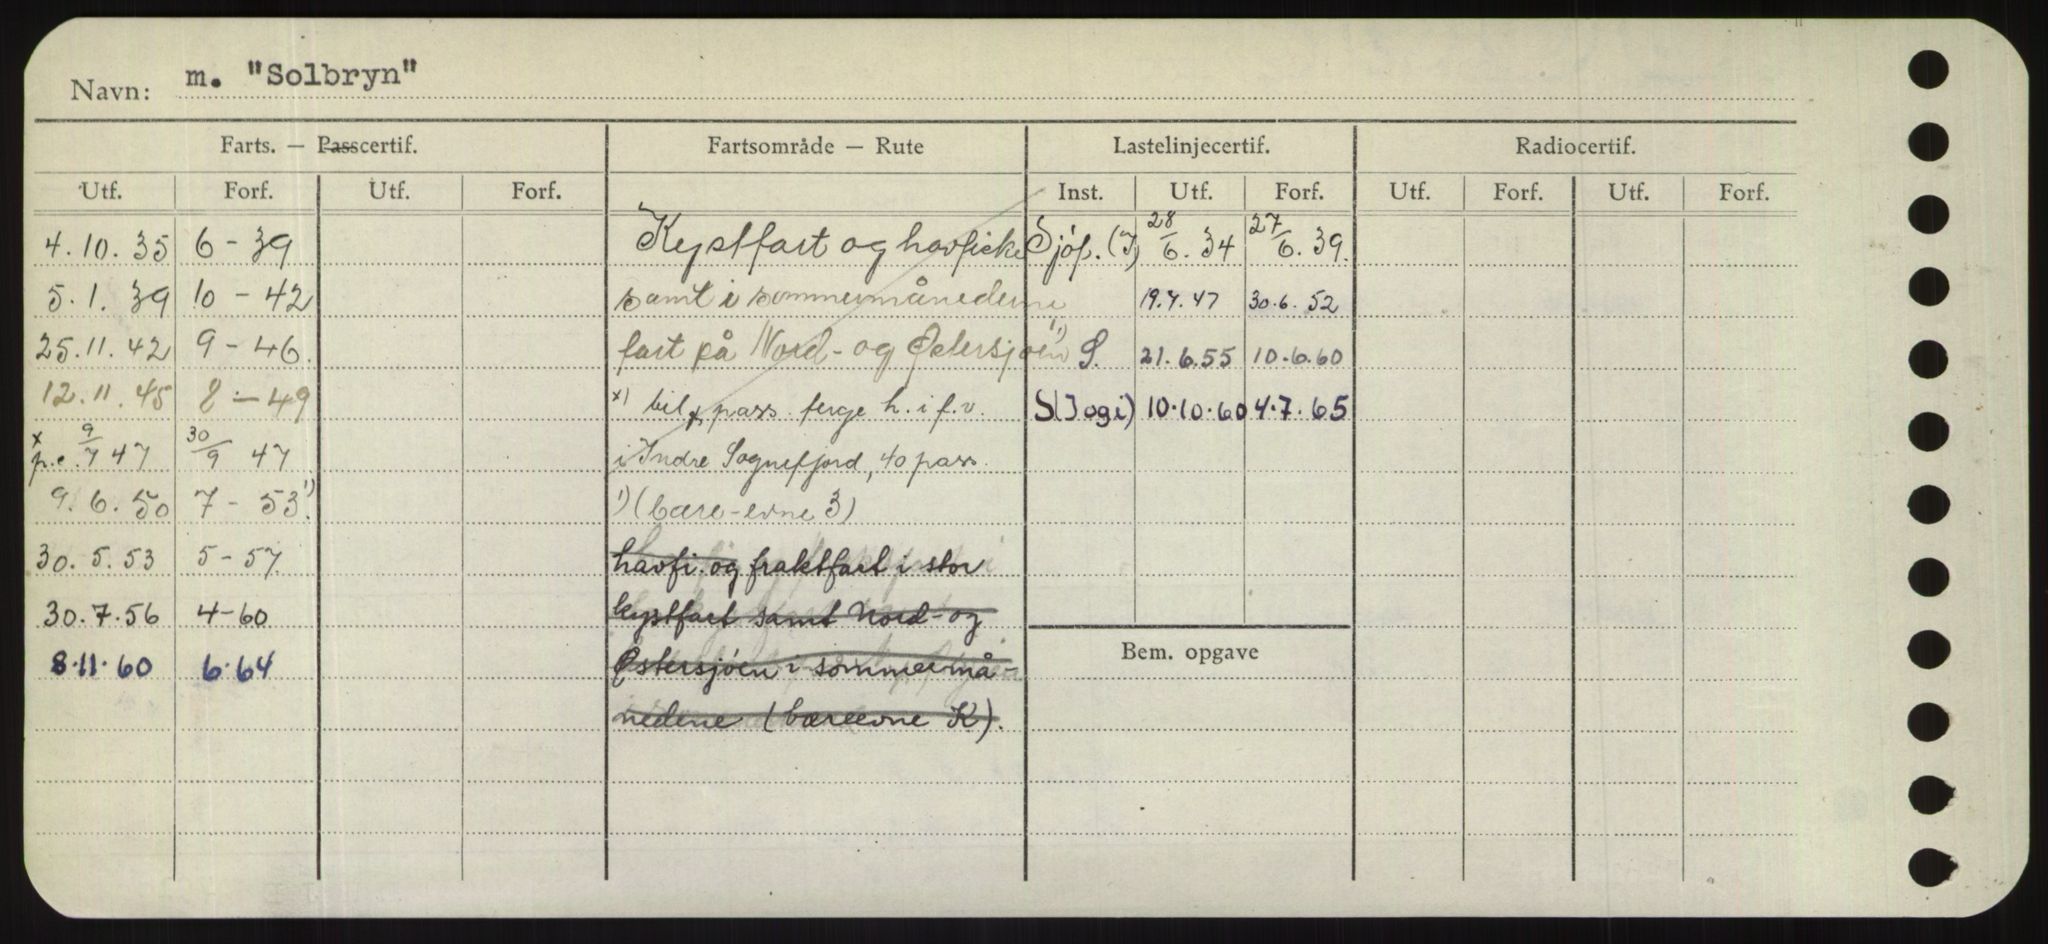 Navn: m. "Solbryn"
Farts. — Passcertif. Fartsområde — Rute Lastelinjecertif. Radiocertif.
Utf. Forf. Utf. Forf. Inst. Utf. Forf. Utf. Forf. Utf. Forf.
4.10.35 6-39 Kystfart og havfiske Sjöf.(I) 28/6.34 27/6.39.
5.1.39 10-42 samt i sommermånederne 19.7.47 30.6.52
25.11.42 9-46. fart på Nord- og Østersjøen 1) S. 21.6.55 10.6.60
12.11.45 8-49 x) bil x pass. ferge h. i f. v. S(I og i) 10.10.60 4.7.65
x p.c. 9/7 47 30/9 47 i Indre Sognefjord, 40 pass.
9.6.50 7-53. 1) 1) (bære-evne 3)
30.5.53 5-57 havfi. og fraktfart i stor
30.7.56 4-60 kystfart samt Nord- og
8.11.60 6.64 Østersjøen i sommermå- Bem. opgave
nedene (bæreevne K).